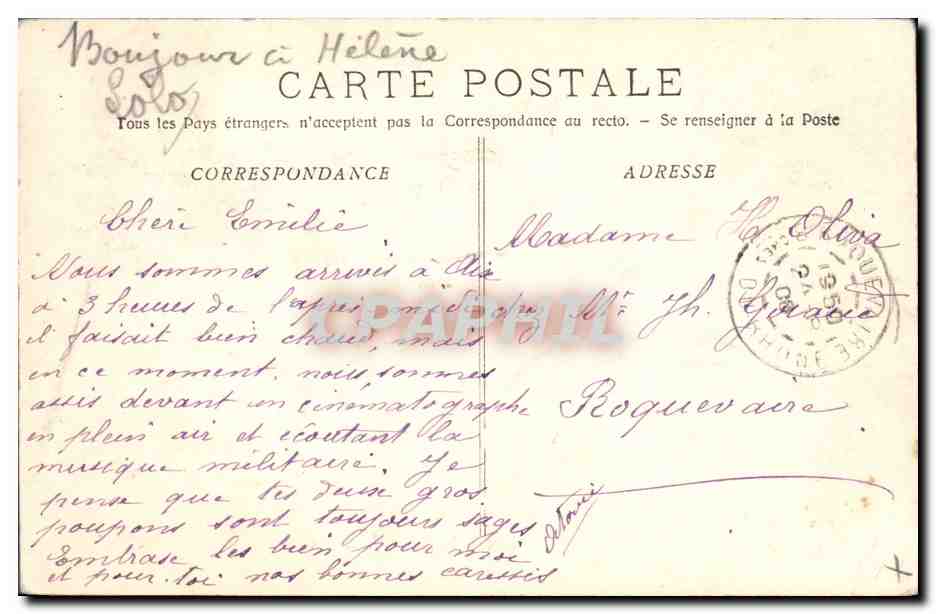 Bonjour à Hélène
Lolo
CARTE POSTALE
Tous les Pays étrangers n'acceptent pas la Correspondance au recto. - Se renseigner à la Poste
CORRESPONDANCE
Chère Emilie
Nous sommes arrivés à Aix
à 3 heures de l'après midi
il faisait bien chaud, mais
en ce moment, nous sommes
assis devant un cinématographe
en plein air et écoutant la
musique militaire. Je
pense que tes deux gros
poupons sont toujours sages
Embrasse les bien pour moi
et pour toi nos bonnes caresses
ADRESSE
Madame H Oliva
chez Mr Jh.
Roquevaire
ROQUEVAIRE
BOUCHES DU RHONE
CPAPHIL
+